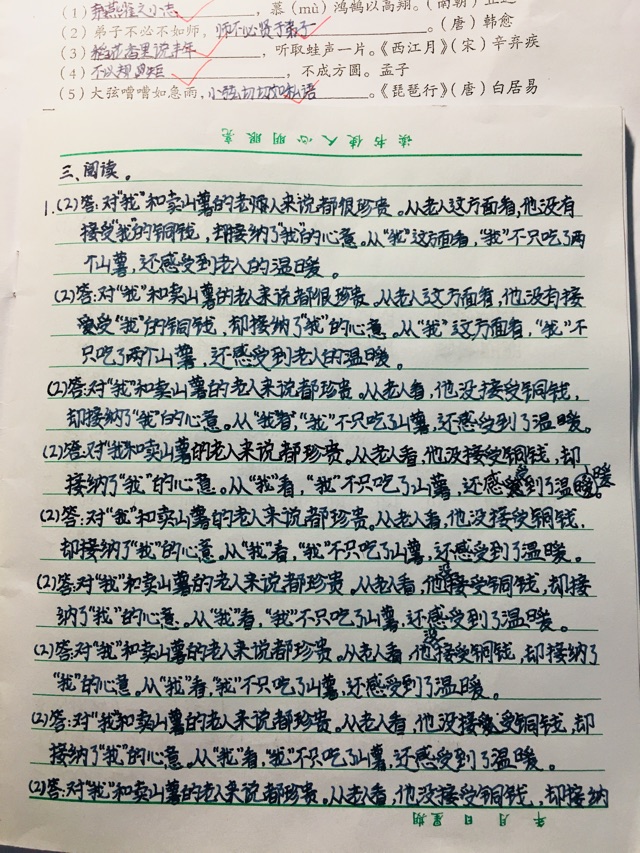 (1) 燕雀之小志，慕（mù）鸿鹄以高翔。（南朝）
(2) 弟子不必不如师，师不必贤于弟子。（唐）韩愈
(3) 稻花香里说丰年，听取蛙声一片。《西江月》（宋）辛弃疾
(4) 不以规矩，不成方圆。孟子
(5) 大弦嘈嘈如急雨，小弦切切如私语。《琵琶行》（唐）白居易
读书使人心明眼亮
三、阅读。
1.(2)答:对“我”和卖山薯的老人来说都很珍贵。从老人这方面看,他没有
接受“我”的铜钱，却接纳了“我”的心意。从“我”这方面看，“我”不只吃了两
个山薯，还感受到老人的温暖。
(2)答:对“我”和卖山薯的老人来说都很珍贵。从老人这方面看，他没有接
受“我”的铜钱，却接纳了“我”的心意。从“我”这方面看，“我”不
只吃了两个山薯，还感受到老人的温暖。
(2)答:对“我”和卖山薯的老人来说都珍贵。从老人看，他没接受铜钱，
却接纳了“我”的心意。从“我”看，“我”不只吃了山薯，还感受到了温暖。
(2)答:对“我”和卖山薯的老人来说都珍贵。从老人看，他没接受铜钱，却
接纳了“我”的心意。从“我”看，“我”不只吃了山薯，还感受到了温暖。
(2)答:对“我”和卖山薯的老人来说都珍贵。从老人看，他没接受铜钱，
却接纳了“我”的心意。从“我”看，“我”不只吃了山薯，还感受到了温暖。
(2)答:对“我”和卖山薯的老人来说都珍贵。从老人看，他没接受铜钱，却接
纳了“我”的心意。从“我”看，“我”不只吃了山薯，还感受到了温暖。
(2)答:对“我”和卖山薯的老人来说都珍贵。从老人看，他没接受铜钱，却接纳了
“我”的心意。从“我”看，“我”不只吃了山薯，还感受到了温暖。
(2)答:对“我”和卖山薯的老人来说都珍贵。从老人看，他没接受铜钱，却
接纳了“我”的心意。从“我”看，“我”不只吃了山薯，还感受到了温暖。
(2)答:对“我”和卖山薯的老人来说都珍贵。从老人看，他没接受铜钱，却接纳
年 月 日 星期